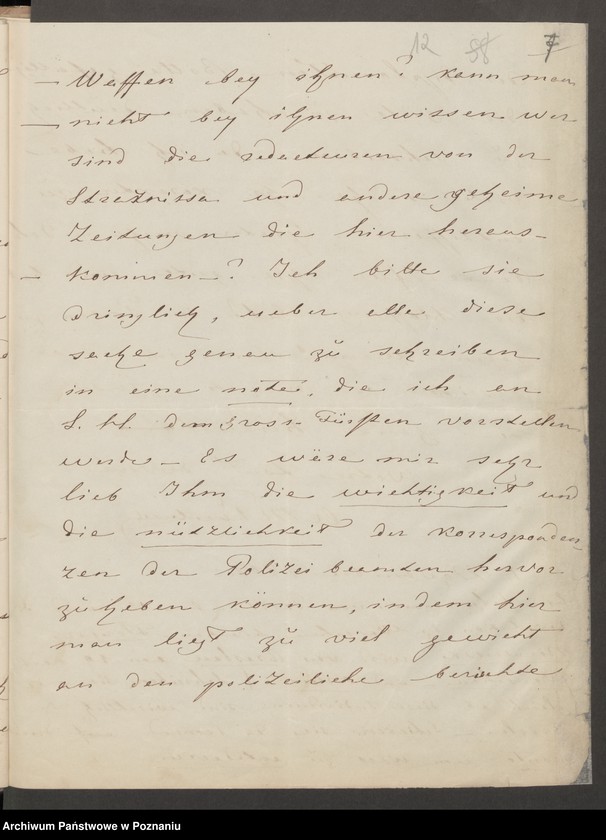 12 58 7
— Waffen bey ihnen? kann man
— nicht bey ihnen wissen wer
sind die redacteuren von der
Straznissa und andere geheime
Zeitungen die hier heraus-
— kommen —? Ich bitte sie
dringlich, ueber alle diese
sache genau zü schreiben
in eine note, die ich an
S. H. dem Gross-Fürsten vorstellen
werde — Es wäre mir sehr
lieb Ihm die wichtigkeit und
die nützlichkeit der Korresponden
zen der Polizei beamten hervor
zü heben können, indem hier
man liegt zü viel gewicht
an den polizeiliche berichte
Archiwum Państwowe w Poznaniu